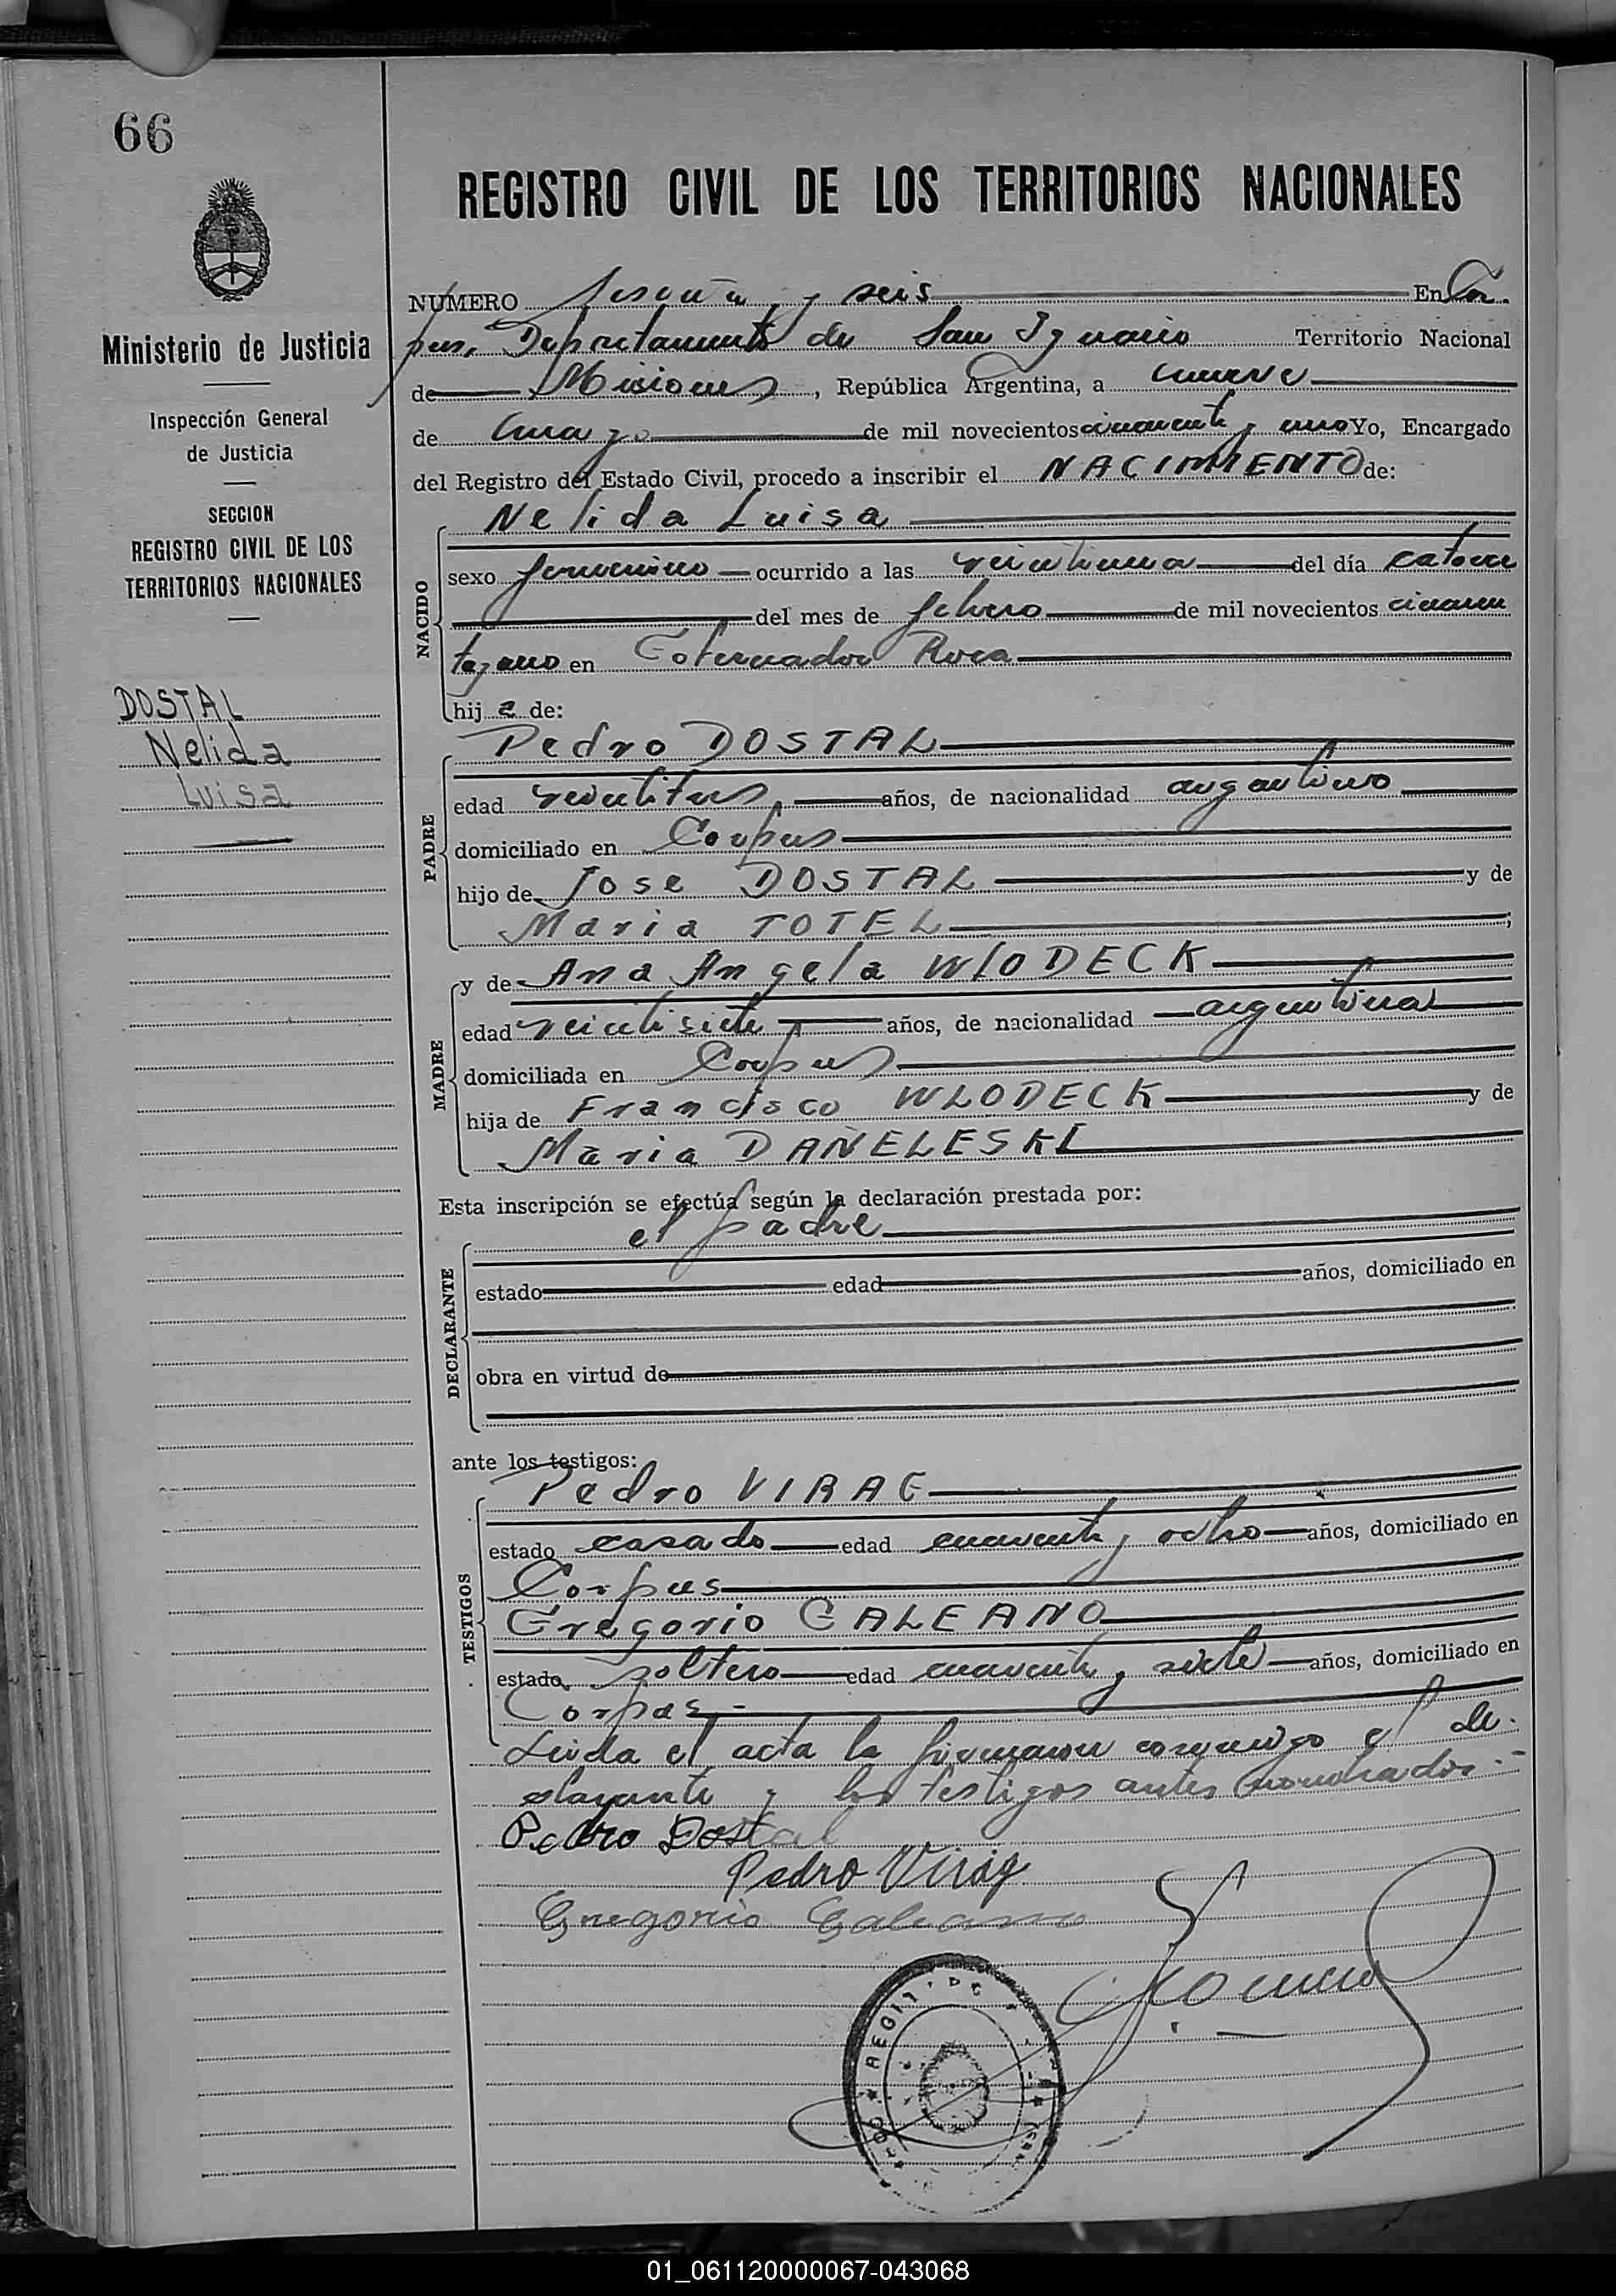 66
REGISTRO CIVIL DE LOS TERRITORIOS NACIONALES
Ministerio de Justicia
Inspección General
de Justicia
SECCION
REGISTRO CIVIL DE LOS
TERRITORIOS NACIONALES
DOSTAL
Nelida
Luisa
NUMERO sesenta y seis En Cor.
pus, Departamento de San Ignacio Territorio Nacional
de Misiones, República Argentina, a nueve
de mayo de mil novecientos cincuenta y uno Yo, Encargado
del Registro del Estado Civil, procedo a inscribir el NACIMIENTO de:
NACIDO
Nelida Luisa
sexo femenino ocurrido a las veintiuna del día catorce
del mes de febrero de mil novecientos cincuen
ta y uno en Gobernador Roca
hij a de:
PADRE
Pedro DOSTAL
edad veintitres, años, de nacionalidad argentino
domiciliado en Corpus
hijo de Jose DOSTAL y de
Maria TOTEL;
MADRE
y de Ana Angela WlODECK
edad veintisiete, años, de nacionalidad argentina
domiciliada en Corpus
hija de Francisco WLODECK y de
Maria DAÑELESKI
Esta inscripción se efectúa según la declaración prestada por:
DECLARANTE
el padre
estado edad años, domiciliado en
obra en virtud de
ante los testigos:
TESTIGOS
Pedro VIRAG
estado casado edad cuarenta y ocho años, domiciliado en
Corpus
Gregorio GALEANO
estado soltero edad cuarenta y siete años, domiciliado en
Corpus
Leida el acta la firmaron conmigo el de-
clarante y los testigos antes nombrados.-
Pedro Dostal
Pedro Virág
Gregorio Galeano
01_061120000067-043068